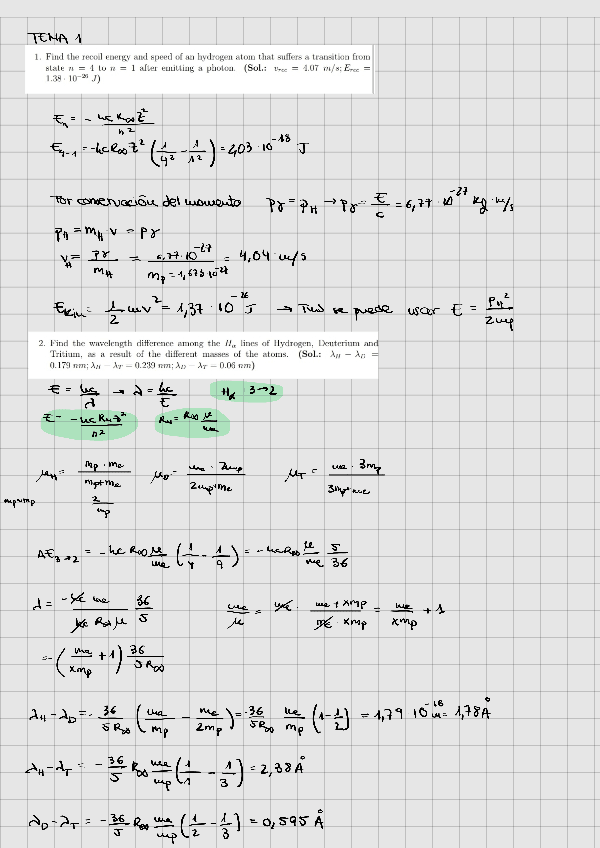 TEMA 1
1. Find the recoil energy and speed of an hydrogen atom that suffers a transition from
state n = 4 to n = 1 after emitting a photon. (Sol.: v_rec = 4.07 m/s; E_rec =
1.38 · 10⁻²⁶ J)
Eₙ = - hcR∞Z² / n²
E₄₋₁ = -hcR∞Z² (1/4² - 1/1²) = 2,03 · 10⁻¹⁸ J
Por conservación del momento pγ = p_H → pγ = E/c = 6,77 · 10⁻²⁷ kg · m/s
p_H = m_H · v = pγ
v_H = pγ / m_H = 6,77 · 10⁻²⁷ / m_p = 1,673 · 10⁻²⁷ = 4,04 m/s
E_kin = 1/2 mv² = 1,37 · 10⁻²⁶ J → Tmb se puede usar E = p_H² / 2m_p
2. Find the wavelength difference among the Hα lines of Hydrogen, Deuterium and
Tritium, as a result of the different masses of the atoms. (Sol.: λ_H − λ_D =
0.179 nm; λ_H − λ_T = 0.239 nm; λ_D − λ_T = 0.06 nm)
E = hc/λ → λ = hc/E Hα 3→2
E = -hcR_H Z² / n² R_H = R∞ μ / me
μ_H = mp · me / mp+me μ_D = me · 2mp / 2mp+me μ_T = me · 3mp / 3mp+me
ΔE₃→₂ = -hc R∞ μ/me (1/4 - 1/9) = -hcR∞ μ/me 5/36
λ = -hc me / hc R∞ μ 36/5 me/μ = me · me + xmp / me · xmp = me/xmp + 1
= -(me/xmp + 1) 36/5R∞
λ_H - λ_D = - 36/5R∞ (me/mp - me/2mp) = -36/5R∞ me/mp (1 - 1/2) = 1,79 10⁻¹⁰ m = 1,78 Å
λ_H - λ_T = -36/5 R∞ me/mp (1/1 - 1/3) = 2,38 Å
λ_D - λ_T = -36/5 R∞ me/mp (1/2 - 1/3) = 0,595 Å